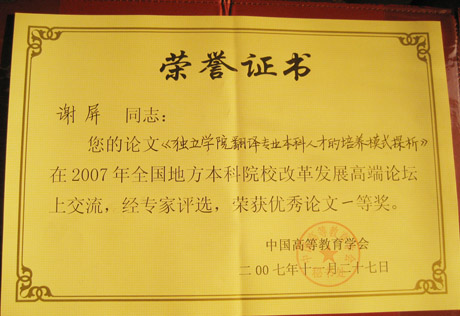 荣誉证书
谢屏 同志：
您的论文《独立学院翻译专业本科人才的培养模式探析》
在2007年全国地方本科院校改革发展高端论坛
上交流，经专家评选，荣获优秀论文一等奖。
中国高等教育学会
二00七年十一月二十七日